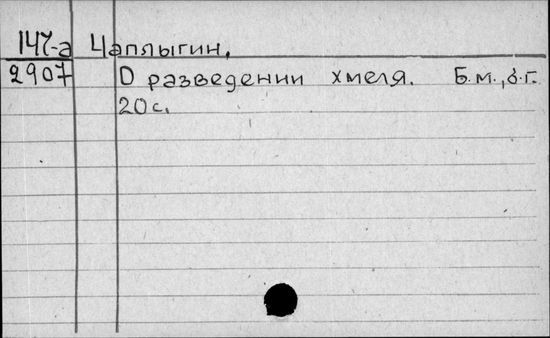 147-а Чаплыгин,
2907 О разведении хмеля. Б.м.,б.г.
20с.